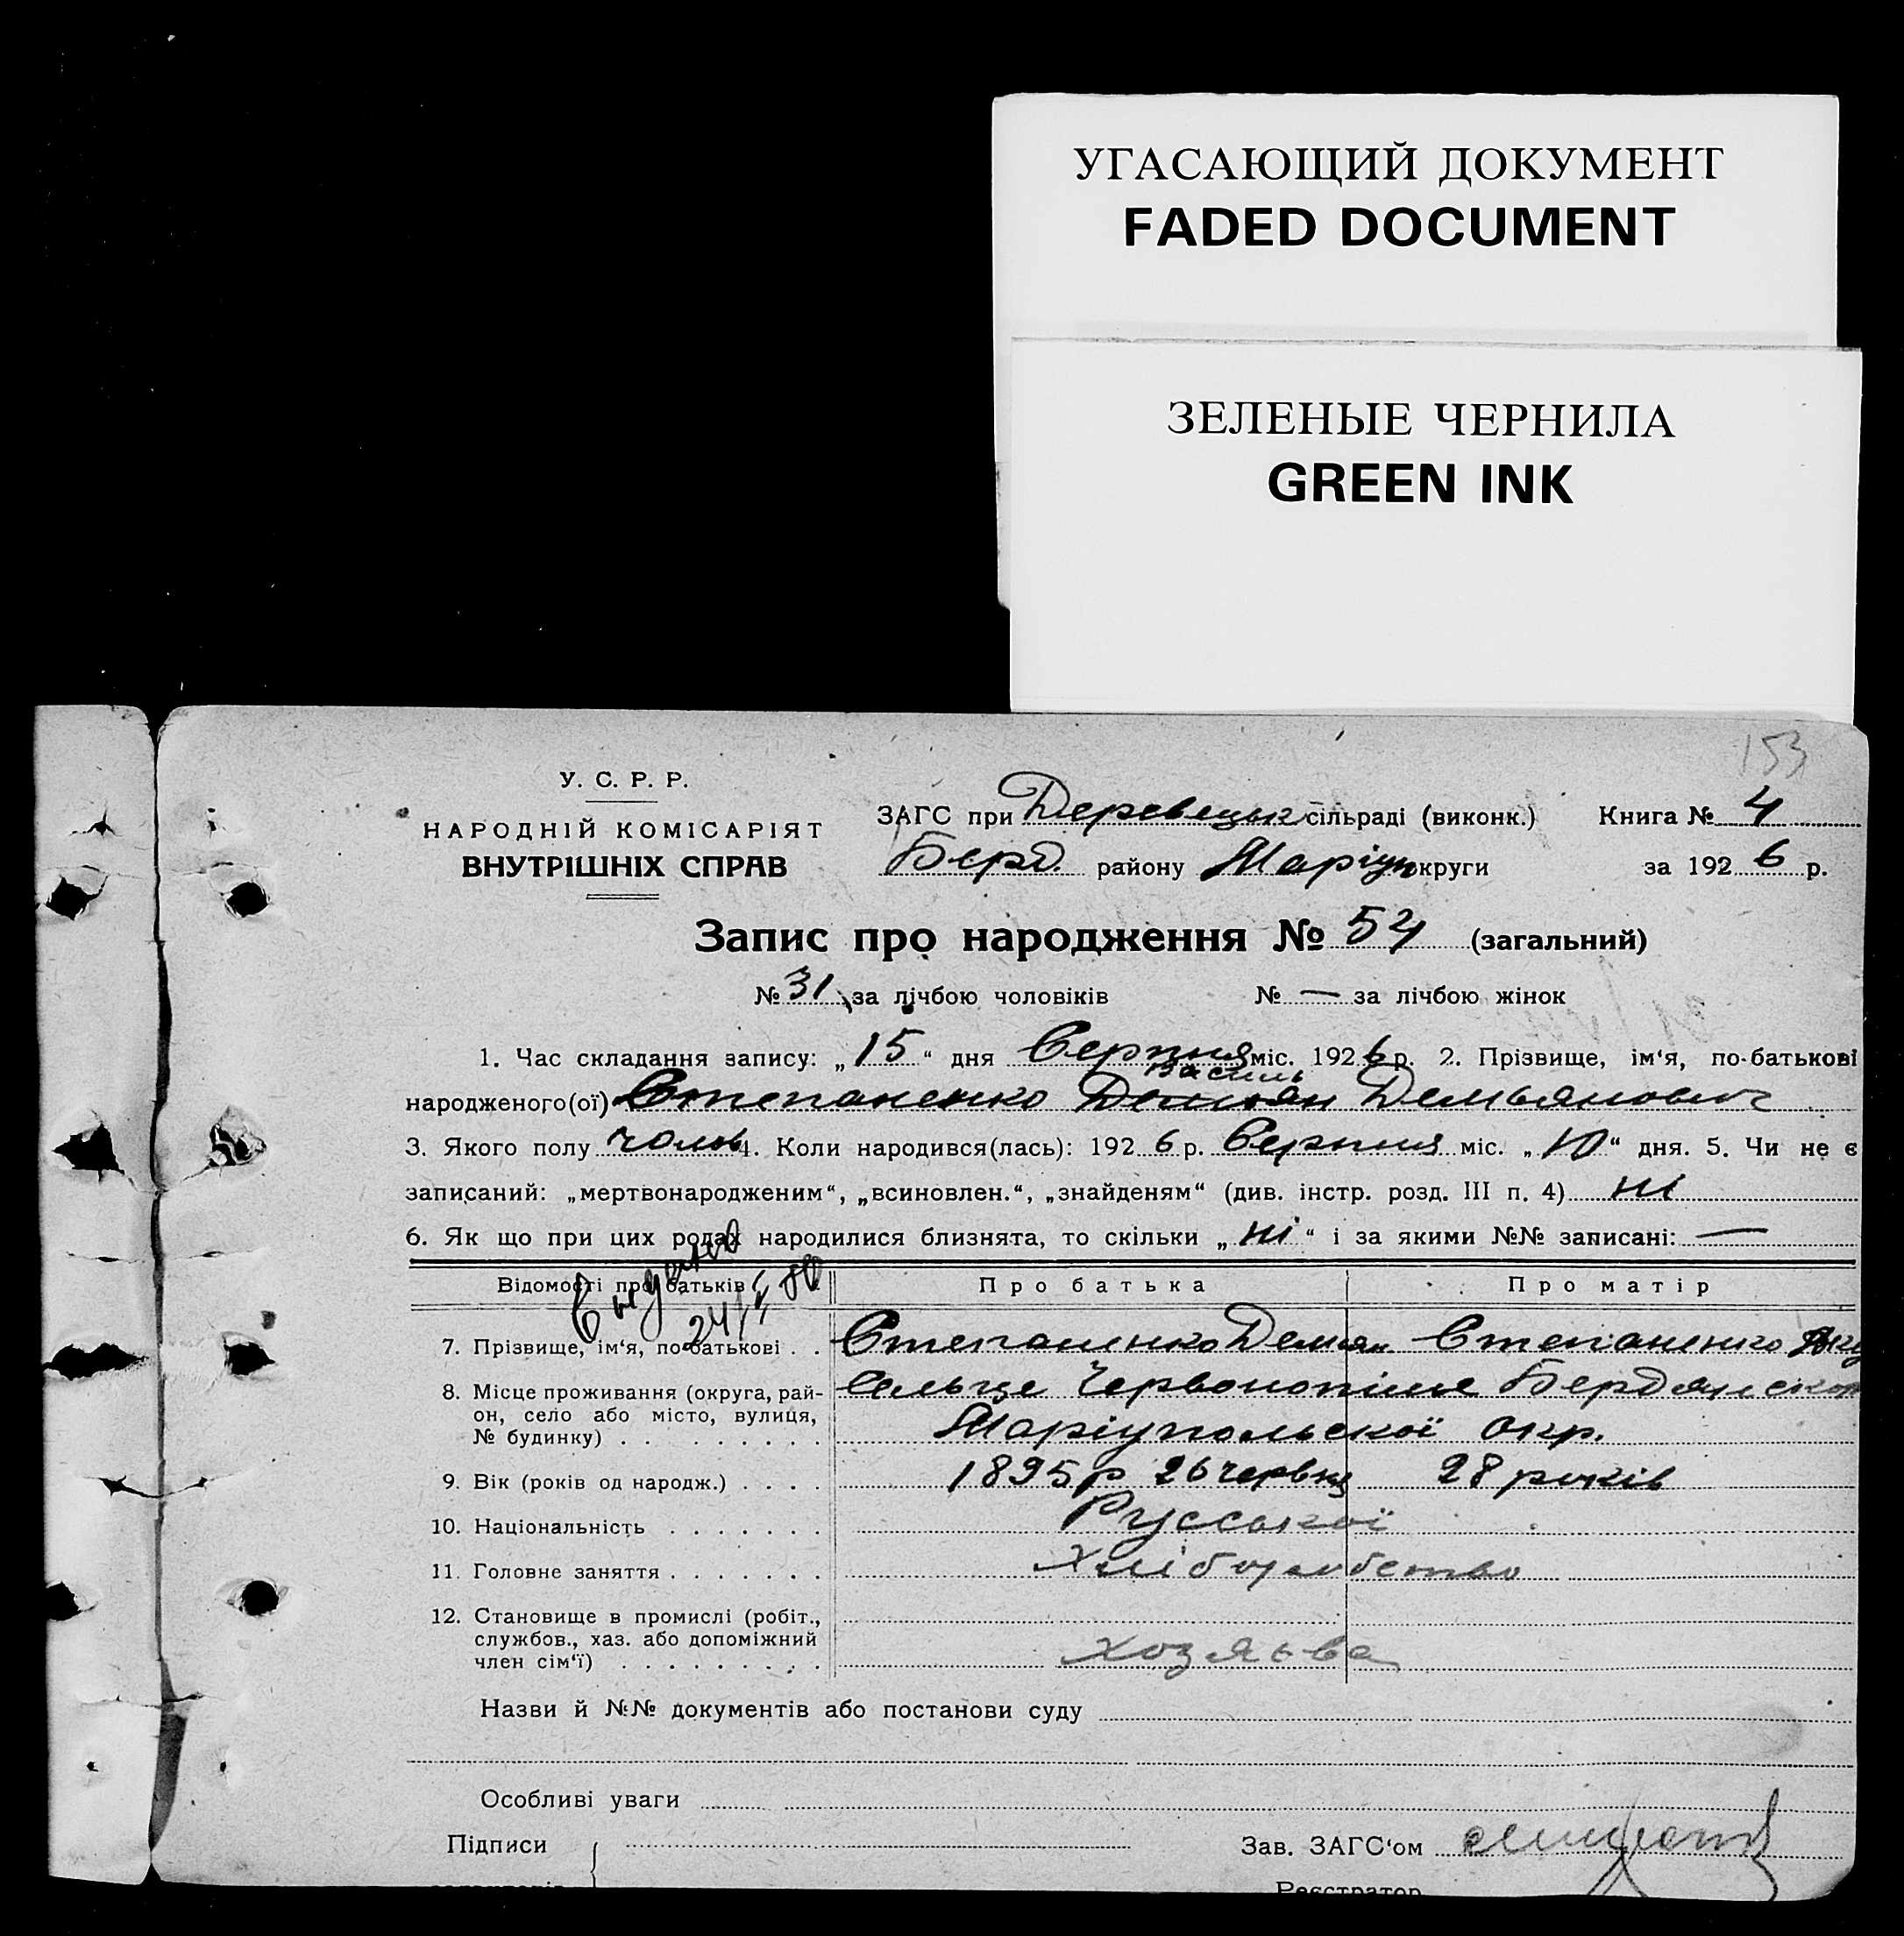 УГАСАЮЩИЙ ДОКУМЕНТ
FADED DOCUMENT
ЗЕЛЕНЫЕ ЧЕРНИЛА
GREEN INK
153
У. С. Р. Р.
НАРОДНІЙ КОМІСАРІЯТ
ВНУТРІШНІХ СПРАВ
ЗАГС при Деревецьк сільраді (виконк.) Книга № 4
Берд. району Маріуп округи за 1926 р.
Запис про народження № 54 (загальний)
№ 31 за лічбою чоловіків № — за лічбою жінок
1. Час складання запису: „15“ дня Серпня міс. 1926 р. 2. Прізвище, ім‘я, по-батькові
Василь
народженого(ої) Степаненко Демян Демьянович
3. Якого полу чолов 4. Коли народився(лась): 1926 р. Серпня міс. „10“ дня. 5. Чи не є
записаний: „мертвонародженим“, „всиновлен.“, „знайденям“ (див. інстр. розд. III п. 4) ні
6. Як що при цих родах народилися близнята, то скільки „ні“ і за якими №№ записані: —
Відомості про батьків Про батька Про матір
7. Прізвище, ім‘я, по-батькові . . Степаненко Демян Степаненко
8. Місце проживання (округа, рай-
он, село або місто, вулиця,
№ будинку) . . . . . . . . .
сельце Червонопілля Бердянськ
Маріупольскої окр.
9. Вік (років од народж.) . . . . 1895 р 26 червня 28 років
10. Національність . . . . . . . Руссокої
11. Головне заняття . . . . . . . Хліборобство
12. Становище в промислі (робіт.,
службов., хаз. або допоміжний
член сім‘ї) . . . . . . . . .
хозяьва
Назви й №№ документів або постанови суду
Особливі уваги
Підписи
Зав. ЗАГС‘ом
Реєстратор